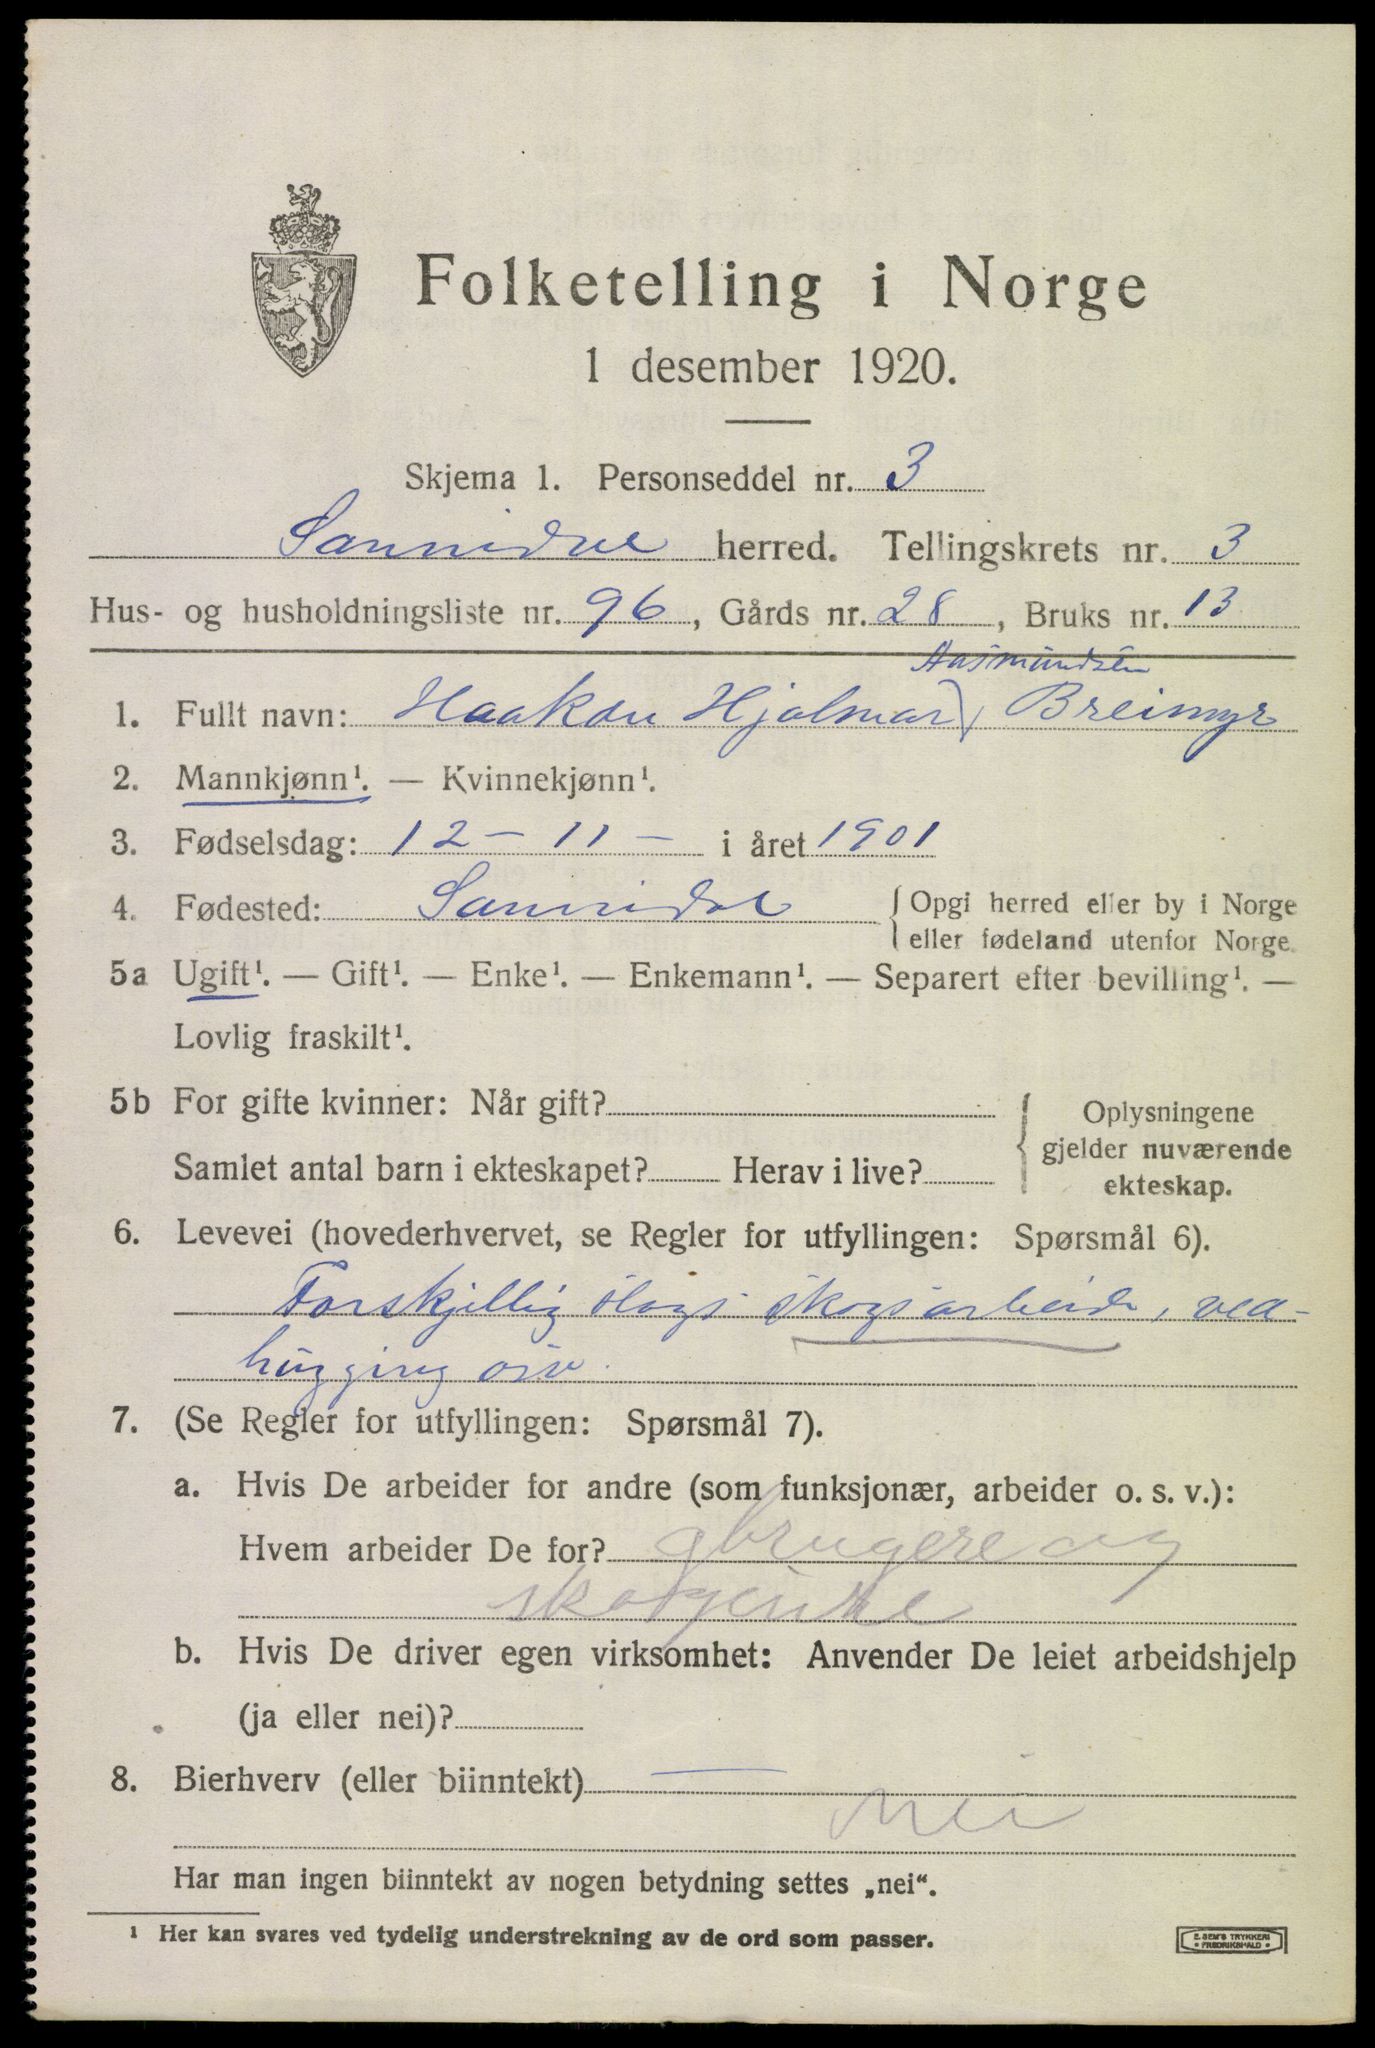 Folketelling i Norge
1 desember 1920.
Skjema 1. Personseddel nr. 3
Sannidal herred. Tellingskrets nr. 3
Hus- og husholdningsliste nr. 96, Gårds nr. 28, Bruks nr. 13
Aasmundsen
1. Fullt navn: Haakon Hjalmar) Breimyr
2. Mannkjønn¹. — Kvinnekjønn¹.
3. Fødselsdag: 12 - 11 - i året 1901
4. Fødested: Sannidal { Opgi herred eller by i Norge
eller fødeland utenfor Norge.
5a Ugift¹. — Gift¹. — Enke¹. — Enkemann¹. — Separert efter bevilling¹. —
Lovlig fraskilt¹.
5b For gifte kvinner: Når gift?
Samlet antal barn i ekteskapet? Herav i live?
{ Oplysningene
gjelder nuværende
ekteskap.
6. Levevei (hovederhvervet, se Regler for utfyllingen: Spørsmål 6).
Forskjellig slags skogsarbeide, ved-
hugging osv.
7. (Se Regler for utfyllingen: Spørsmål 7).
a. Hvis De arbeider for andre (som funksjonær, arbeider o. s. v.):
Hvem arbeider De for? gbrugere og
skogeiere
b. Hvis De driver egen virksomhet: Anvender De leiet arbeidshjelp
(ja eller nei)?
8. Bierhverv (eller biinntekt) —
nei
Har man ingen biinntekt av nogen betydning settes „nei“.
¹ Her kan svares ved tydelig understrekning av de ord som passer.
E. SEM'S TRYKKERI
• FREDRIKSHALD •